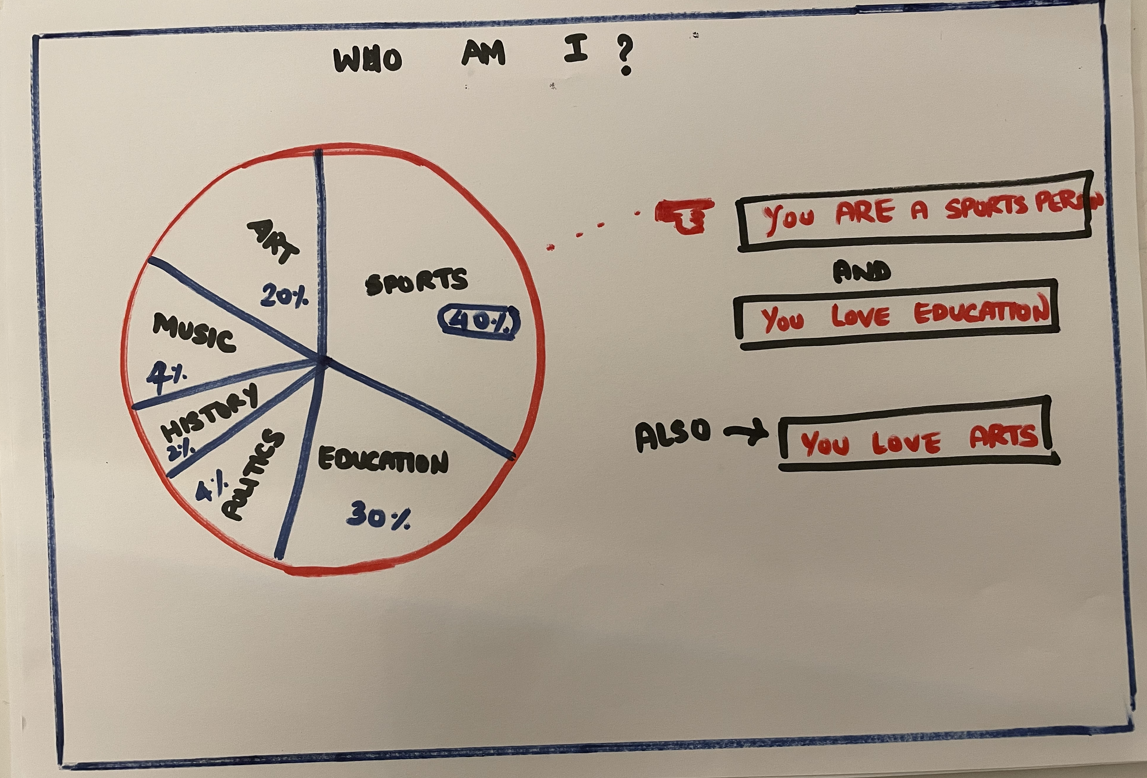 WHO AM I ?
ART
20%
SPORTS
40%
MUSIC
4%
HISTORY
2%
POLITICS
4%
EDUCATION
30%
YOU ARE A SPORTS PERSON
AND
YOU LOVE EDUCATION
ALSO → YOU LOVE ARTS